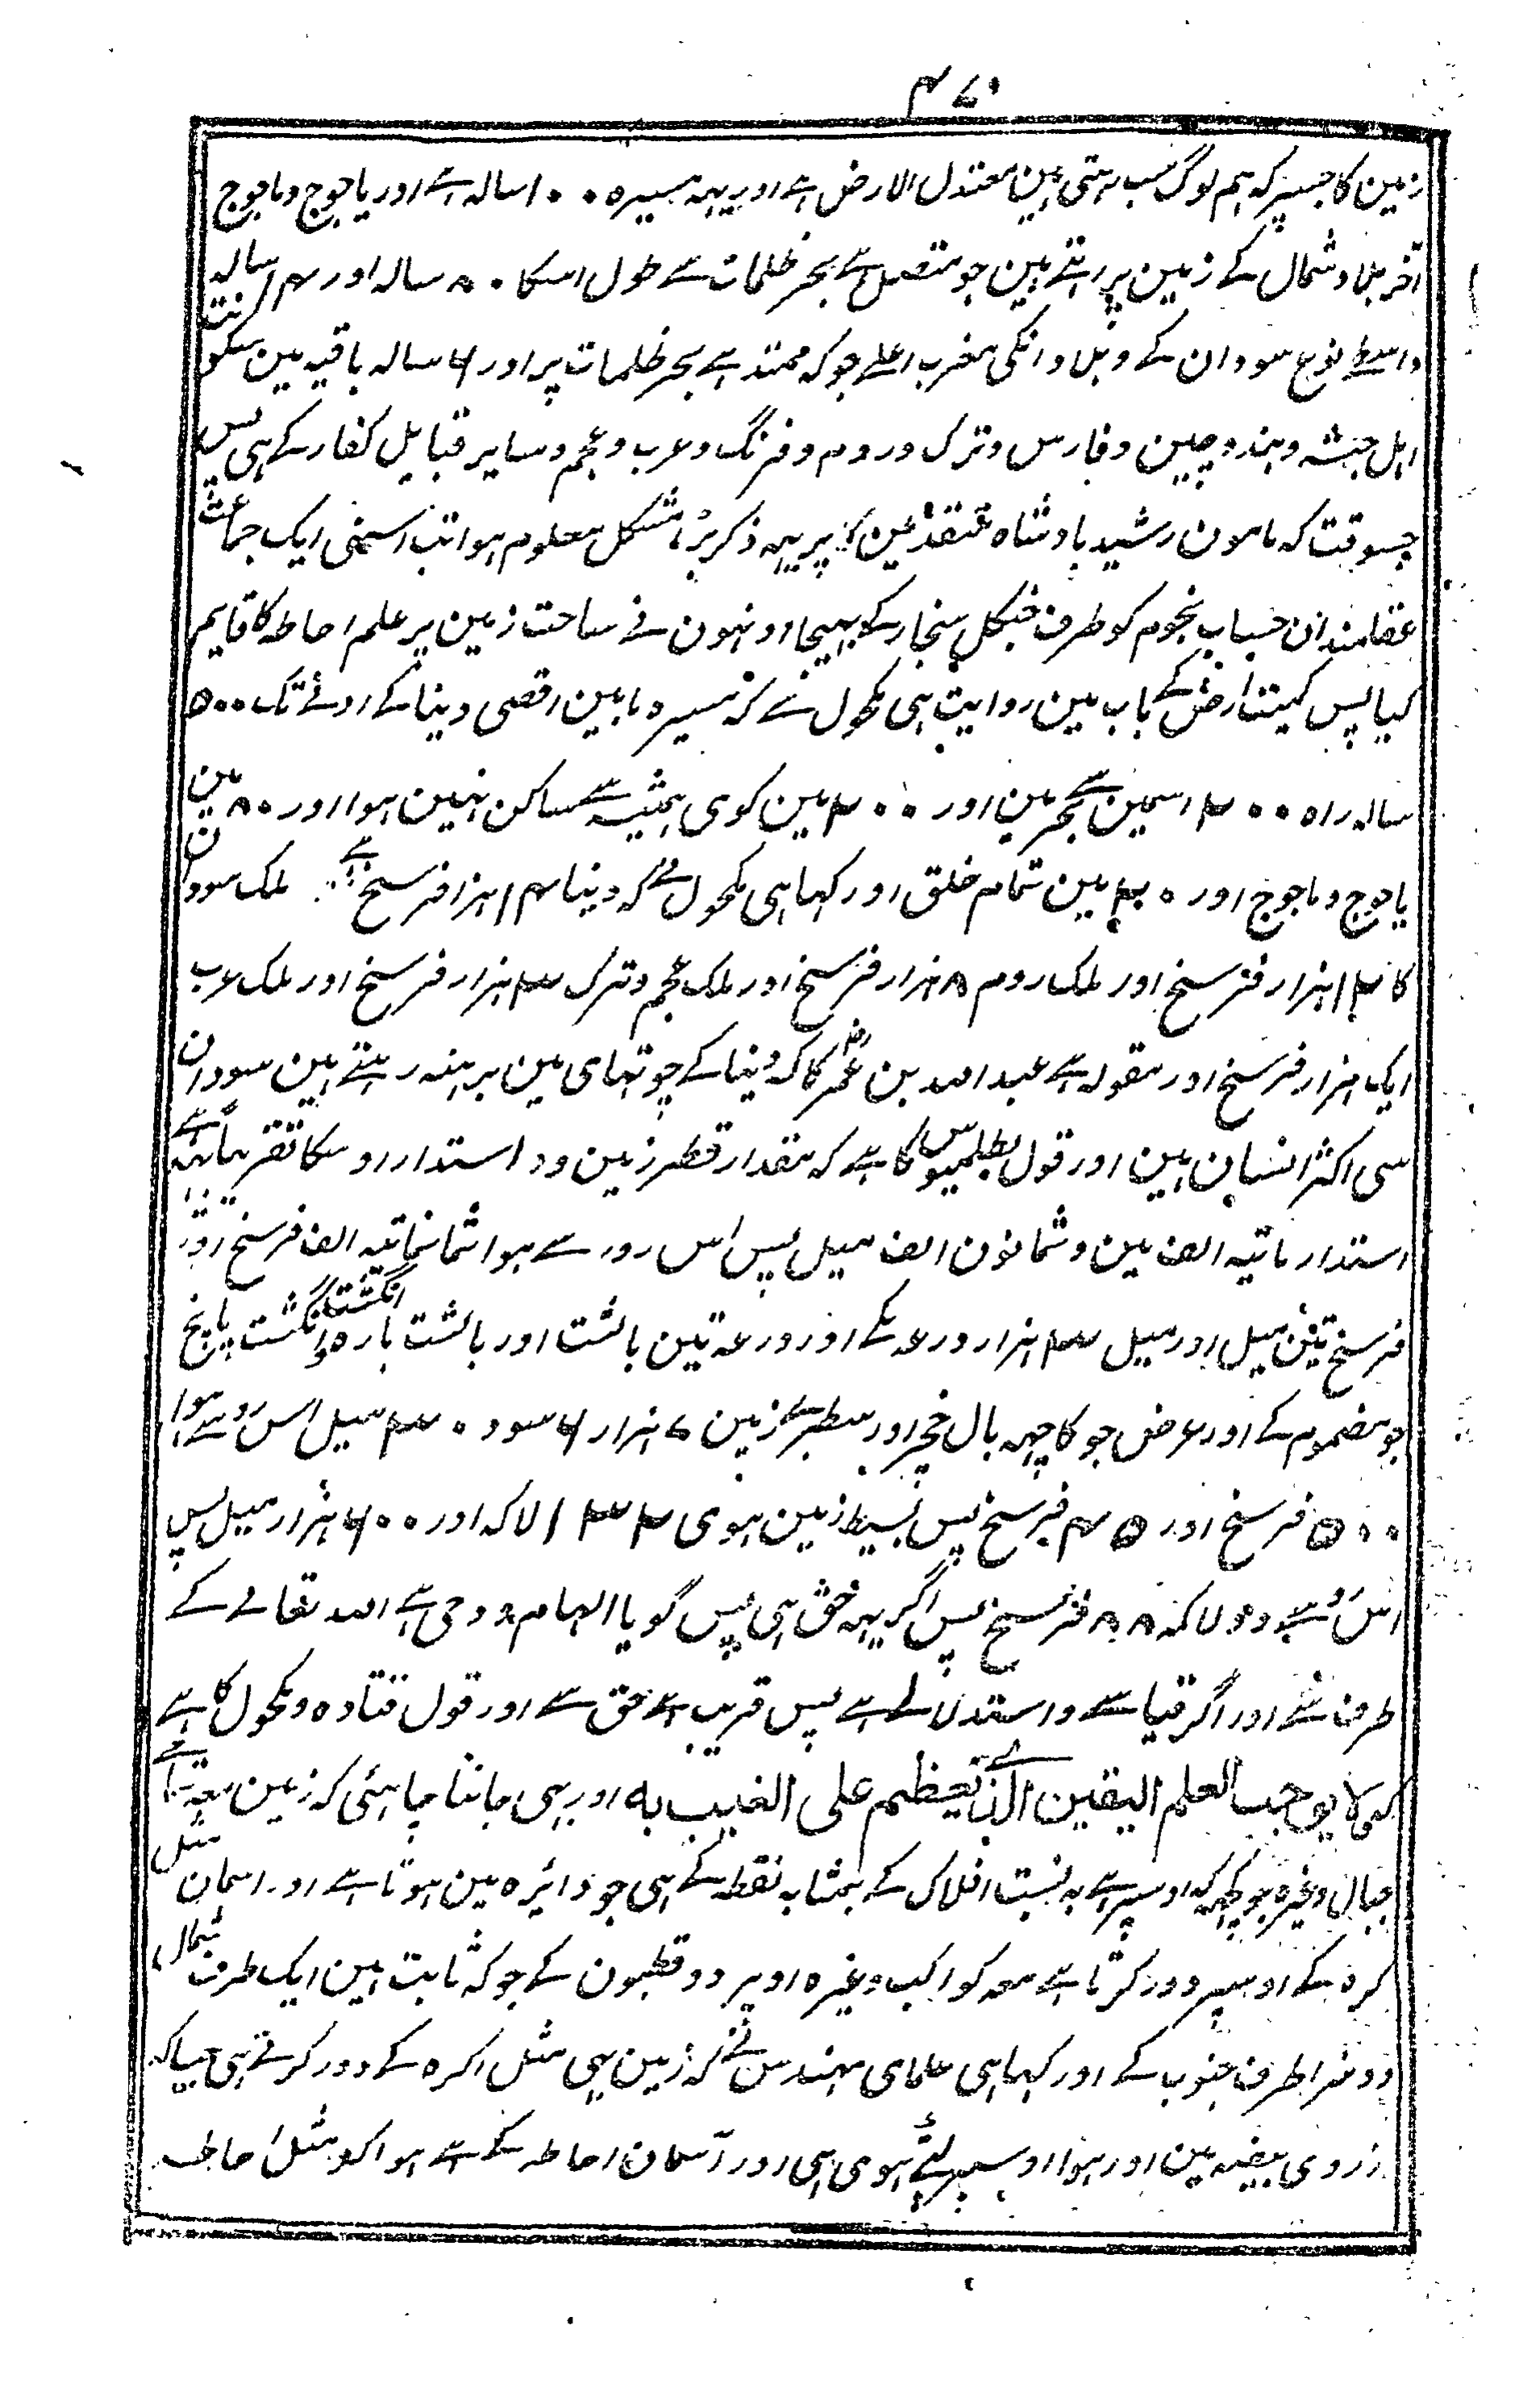 ۴۷۰
زمین کا جسپر کہ ہم لوگ سب رہتی ہین معتدل الارض ہے اور یہہ مسیرہ ۱۰۰ سالہ ہے اور یاجوج وماجوج
آخر بلاد شمال کے زمین پر رہتے ہین جو متصل ہے بحر ظلمات سے طول اسکا ۸۰ سالہ اور ۱۴ سالہ
واسطے نوع سودان کے و بلاد انکی مغرب اعلے جو کہ ممتد ہے بحر ظلمات پر اور ۶ سالہ باقیہ مین سکونت
اہل حبشہ وہند وچین وفارس وترک وروم وفرنگ وعرب وعجم وسایر قبایل کفار کے ہی پس
جسوقت کہ مامون رشید بادشاہ متقدمین پر یہہ ذکر بڑا مشکل معلوم ہوا تب اسمنی ایک جماعت
عقلمندان حساب نجوم کو طرف جنگل سنجار کے بہیجا اونہون نے ساحت زمین پر علم احاطہ کا قایم
کیا پس کمیت ارض کے باب مین روایت ہی مکحول سے کہ مسیرہ مابین اقصی دینا کے ادنے تک ۵۰۰
سالہ راہ ۲۰۰ اسمین سے بحر ہین اور ۲۰۰ مین کوی ہمیشہ سے ساکن نہین ہوا اور ۸۰ مین
یاجوج وماجوج اور ۲۰ مین تمام خلق اور کہا ہی مکحول نے کہ دینا ۲۴ ہزار فرسخ ہے ملک سودان
کا ۱۲ ہزار فرسخ اور ملک روم ۸ ہزار فرسخ اور ملک عجم وترک ۳ ہزار فرسخ اور ملک عرب
ایک ہزار فرسخ اور مقولہ ہے عبد اللہ بن عمرؓ کا کہ دینا کے چوتہای مین برہنہ رہتے ہین سودان
سی اکثر انسان ہین اور قول بطلمیوس کا ہے کہ مقدار قطر زمین و استدار اوسکا تقریباً ہے
استدار ماتیہ الف ہین وثمانون الف میل پس اس رو سے ہوا ثمانماتیہ الف فرسخ اور
فرسخ تین میل اور میل ۳ ہزار ورعہ کے اور ورعہ تین بالشت اور بالشت بارہ انگشت انگشت پانچ
جو مضموم کے اور عرض جو کا چہہ بال خچر اور سطبرے زمین ۷ ہزار ۶ سو و ۳۰ میل اس رو سے ہوا
۵۰۰ فرسخ اور ۴۵ فرسخ پس بسیط زمین ہوی ۱۳۲ لاکہ اور ۶۰۰ ہزار میل پس
اس رو سے دو لاکہہ ۸۸ فرسخ پس اگر یہہ حق ہی پس گویا الہام و وحی ہے اللہ تعالے کے
طرف سے اور اگر قیاسے و استدلالے ہے پس قریب ہے حق سے اور قول قتادہ ومکحول کا ہے
کہ لا یوجب العلم الیقین الذے تعظم علی الغیب بہ اور یہی جاننا چاہئی کہ زمین معہ
جبال وغیرہ جو کچہہ کہ اوسپر ہے بہ نسبت افلاک کے بمشابہ نقطہ کے ہی جو دائرہ مین ہوتا ہے اور اسمان مثل
کرہ کے اوسپر دور کرتا ہے معہ کواکب وغیرہ اوپر دو قطبون کے جو کہ ثابت ہین ایک طرف شمال
دوسرا طرف جنوب کے اور کہا ہی علمای مہندس نے کہ زمین بہی مثل اکرہ کے دور کرتے ہی جیسا کہ
زردی بیضہ مین اور ہوا اوسپر لپٹے ہوی ہی اور آسمان احاطہ کئے ہے ہوا کو مثل احاطہ